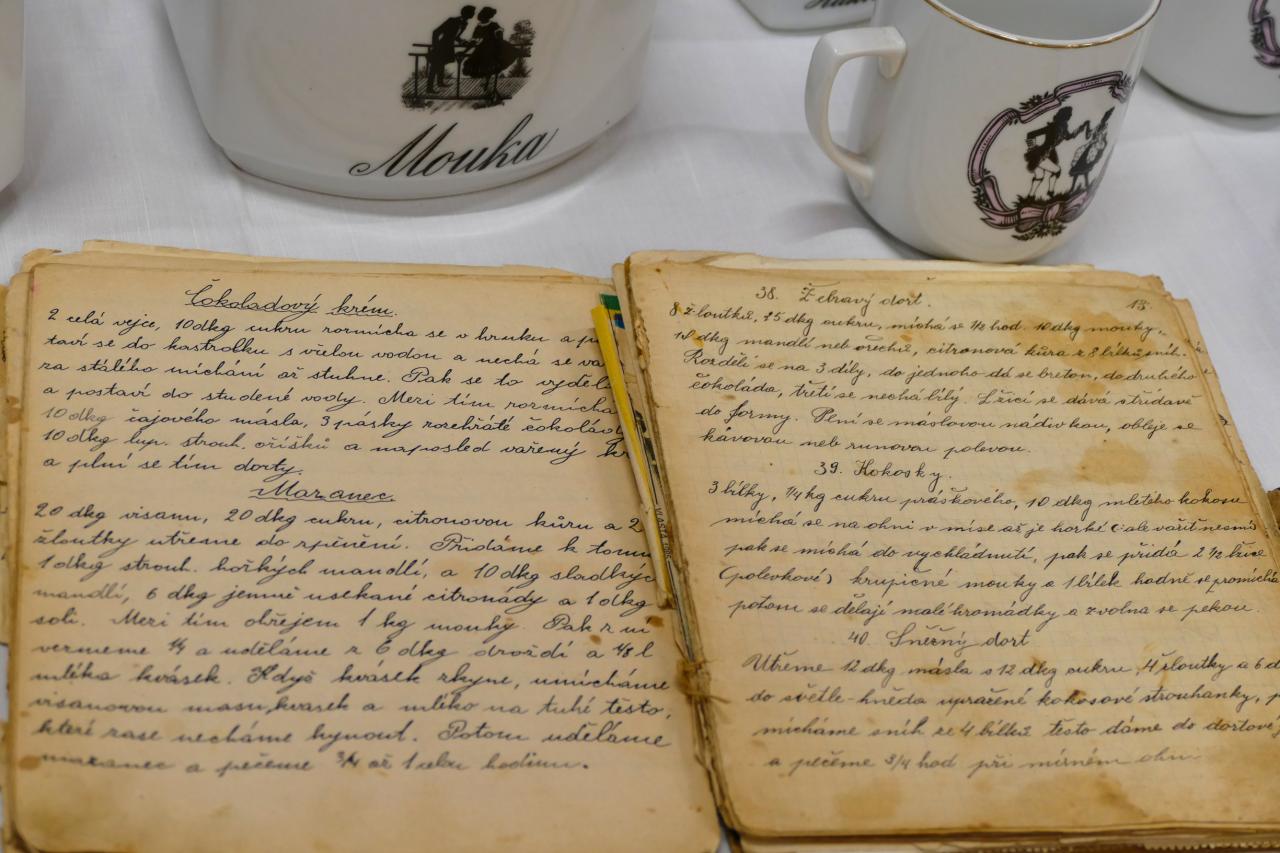 Mouka
Čokoladový krém.
2 celá vejce, 10dkg cukru rozmícha se v hrnku a po
taví se do kastrolku s vřelou vodou a nechá se va
za stálého míchání až stuhne. Pak se to vyděl
a postaví do studené vody. Mezi tím rozmícha
10 dkg čajového másla, 3 pásky rozehráté čokolády
10 dkg lup. strouh. oříšků a naposled vařený kr
a plní se tím dorty.
Mazanec.
20 dkg visanu, 20 dkg cukru, citronovou kůru a 2
žloutky utřeme do zpěnění. Přidáme k tomu
1 dkg strouh. hořkých mandlí, a 10 dkg sladkýc
mandlí, 6 dkg jemně usekané citronády a 1 dkg
soli. Mezi tím ohřejem 1 kg mouky. Pak z ní
vezmeme 1/4 a uděláme z 6 dkg droždí a 1/8 l
mléka kvásek. Když kvásek zkyne, umícháme
visanovou masu, kvasek a mléko na tuhé těsto,
které zase necháme kynout. Potom uděláme
mazanec a pečeme 3/4 až 1 celou hodinu.
13.
38. Žebravý dort.
8 žloutků, 25 dkg cukru, míchá se 1/2 hod. 10 dkg mouky,
10 dkg mandlí neb ořechů, citronová kůra z 8 bílků sníh.
Rozdělí se na 3 díly, do jednoho dá se breton, do druhého
čokoláda, třetí se nechá bílý. Lžící se dává střídavě
do formy. Plní se máslovou nádivkou, obleje se
kávovou neb rumovou polevou.
39. Kokosky.
3 bílky, 1/4 kg cukru práškového, 10 dkg mletého kokosu
míchá se na ohni v míse až je horké (:ale vařit nesmí
pak se míchá do vychládnutí, pak se přidá 2 1/2 lžíce
(polevkové) krupičné mouky a 1 bílek hodně se promíchá
potom se dělají malé hromádky a zvolna se pekou.
40. Sněžný dort
Utřeme 12 dkg másla s 12 dkg cukru, 4 žloutky a 6 d
do světle-hněda upražené kokosové strouhanky, p
mícháme sníh ze 4 bílků těsto dáme do dortové
a pečeme 3/4 hod při mírném ohni